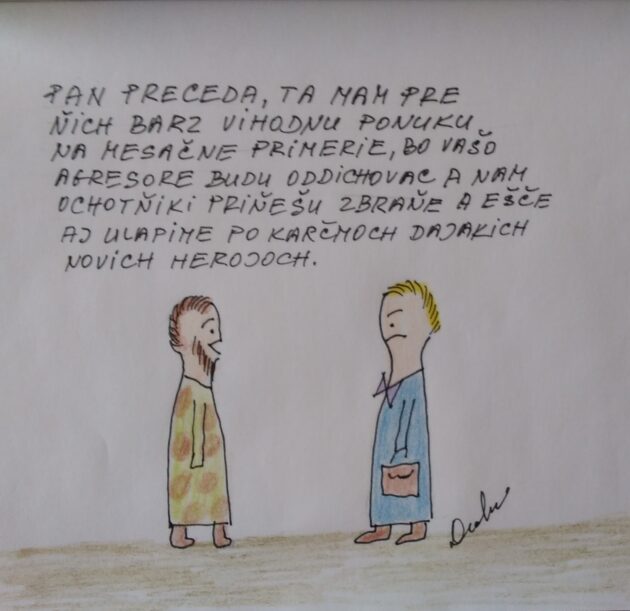 PAN PRECEDA, TA MAM PRE
ŇICH BARZ VIHODNU PONUKU
NA MESAČNE PRIMERIE, BO VAŠO
AGRESORE BUDU ODDICHOVAC A NAM
OCHOTŇIKI PRIŇEŠU ZBRAŇE A EŠČE
AJ ULAPIME PO KARČMOCH DAJAKICH
NOVICH HEROJOCH.